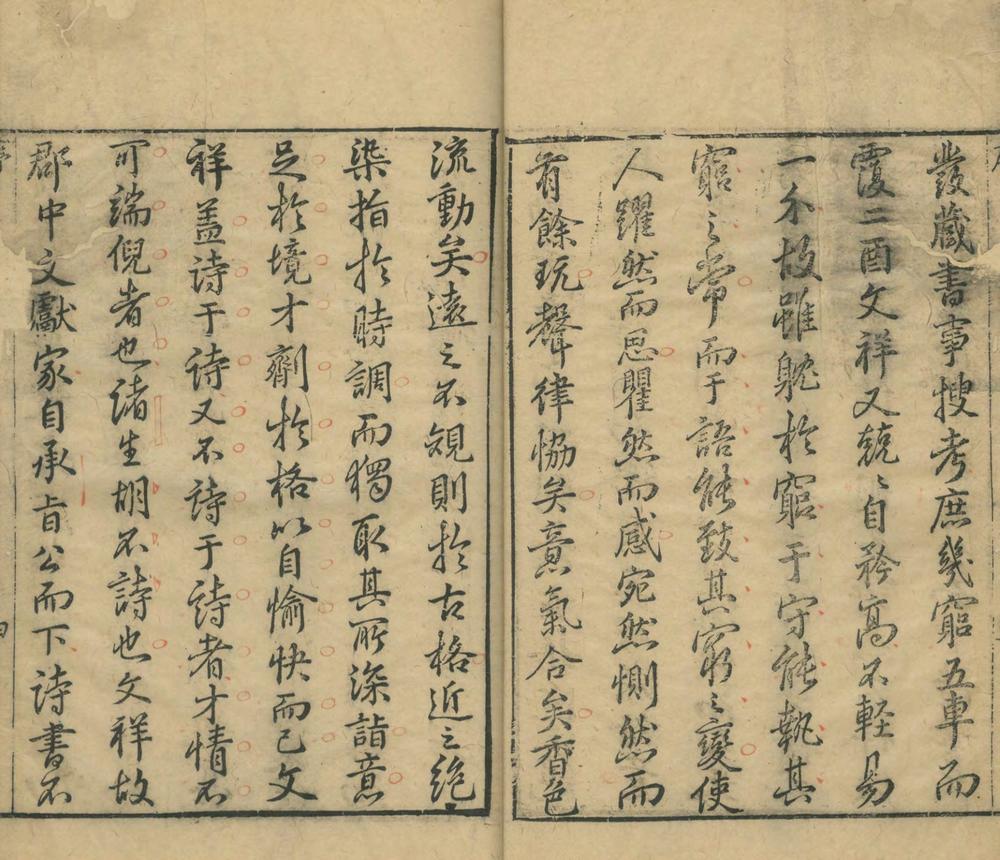 發藏書事搜考庶幾窮五車而
覆二酉文祥又兢〻自矜高不輕易
一介故雖躭於窮于守能執其
窮之常而于語能致其窮之變使
人躍然而思瞿然而感宛然惻然而
有餘玩聲律恊矣音氣合矣香色
流動矣遠之不䂓則於古格近之絶
染指於時調而獨取其所深詣意
足於境才劑於格以自愉快而已文
祥盖詩于詩又不詩于詩者才情不
可端倪者也諸生胡不詩也文祥故
郡中文獻家自承旨公而下詩書不
序
四